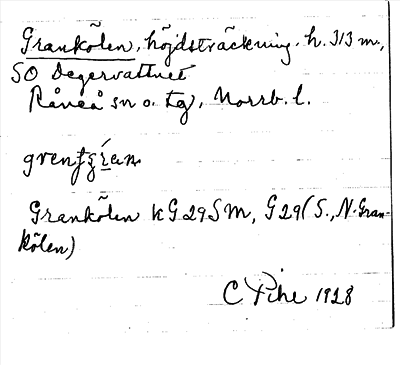 Grankölen, höjdsträckning, h. 313 m,
SO Degervattnet
Råneå sn o. tg, Norrb. l.
Grankölen kG29SM, G29(S., N. Gran-
kölen)
C Pihl 1928